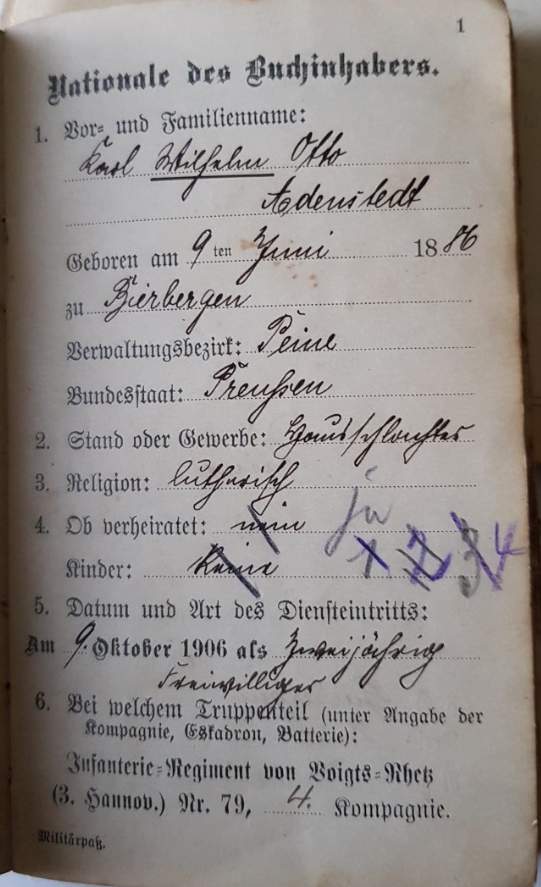 1
Nationale des Buchinhabers.
1. Vor- und Familienname:
Karl Wilhelm Otto
Adenstedt
Geboren am 9ten Juni 1886
zu Bierbergen
Verwaltungsbezirk: Peine
Bundesstaat: Preußen
2. Stand oder Gewerbe: Hausschlachter
3. Religion: lutherisch
4. Ob verheiratet: nein ja
Kinder: keine 1 2 3 4
5. Datum und Art des Diensteintritts:
Am 9. Oktober 1906 als Zweijährig
Freiwilliger
6. Bei welchem Truppenteil (unter Angabe der
Kompagnie, Eskadron, Batterie):
Infanterie-Regiment von Voigts-Rhetz
(3. Hannov.) Nr. 79, 4. Kompagnie.
Militärpaß.